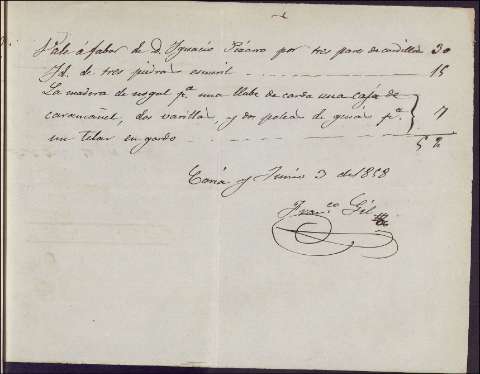 Vale á fabor de D. Ignacio Pizarro por tres pares de cardillas 30
Id. de tres piedras esmeril 15
La madera de nogal pª una llabe de carda una caja de
caramañel, dos varillas, y dos poleas de pª 7
un telar en gordo 52
Coria y Junio 3 de 1858
Franco Gil